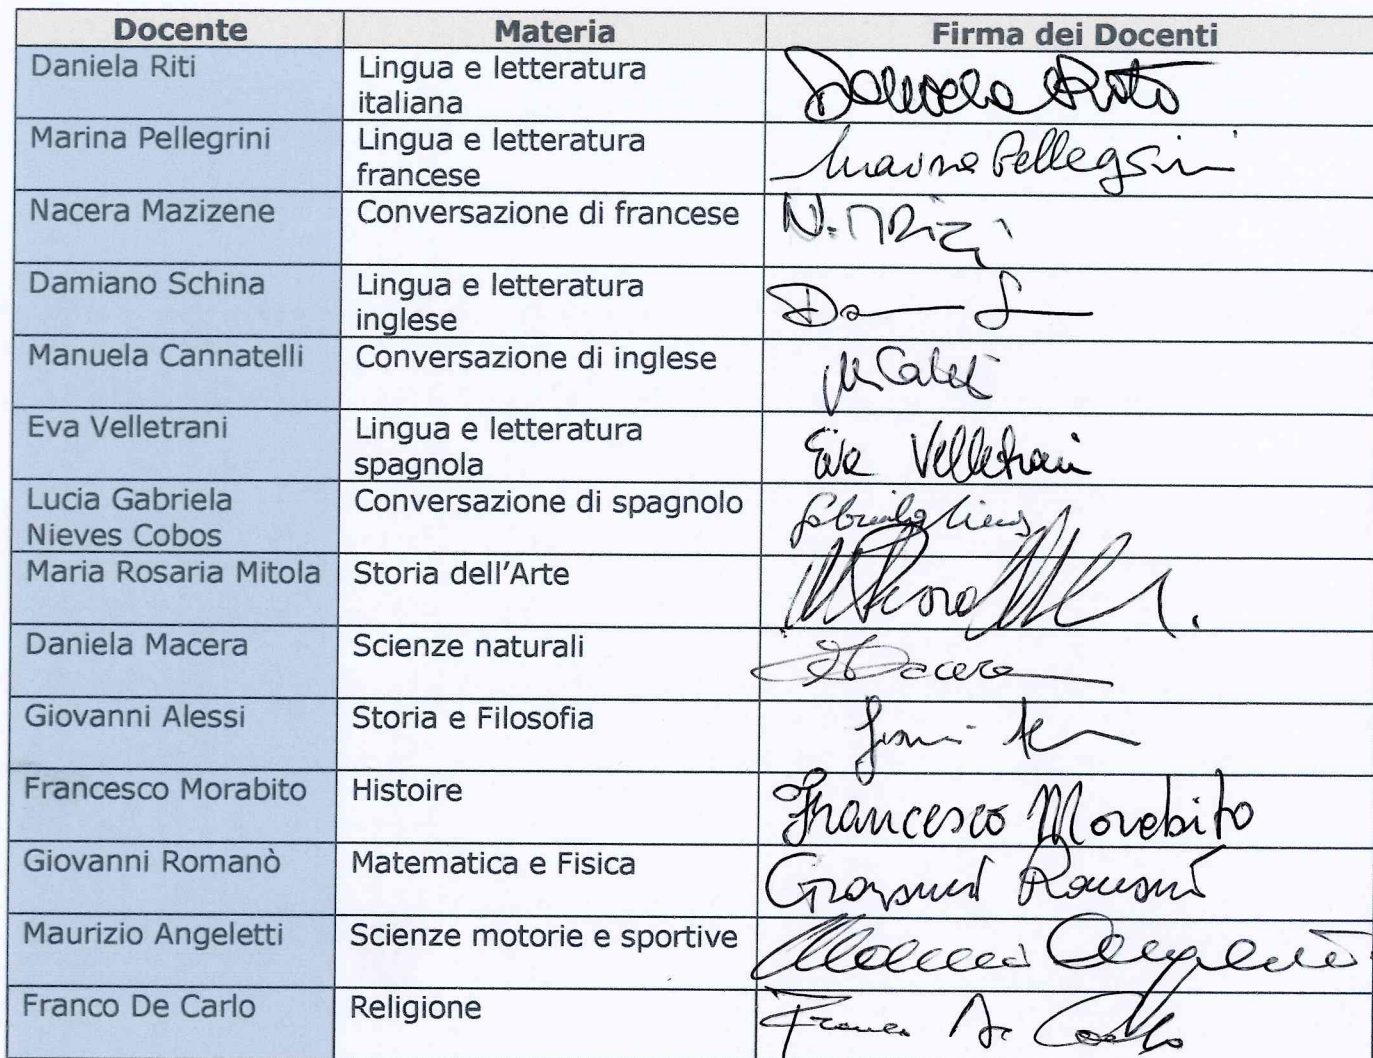 Docente Materia Firma dei Docenti
Daniela Riti Lingua e letteratura italiana Daniela Riti
Marina Pellegrini Lingua e letteratura francese Marina Pellegrini
Nacera Mazizene Conversazione di francese N.
Damiano Schina Lingua e letteratura inglese
Manuela Cannatelli Conversazione di inglese
Eva Velletrani Lingua e letteratura spagnola Eva Velletrani
Lucia Gabriela Nieves Cobos Conversazione di spagnolo
Maria Rosaria Mitola Storia dell'Arte
Daniela Macera Scienze naturali DMacera
Giovanni Alessi Storia e Filosofia
Francesco Morabito Histoire Francesco Morabito
Giovanni Romanò Matematica e Fisica Giovanni Romanò
Maurizio Angeletti Scienze motorie e sportive
Franco De Carlo Religione Franco De Carlo